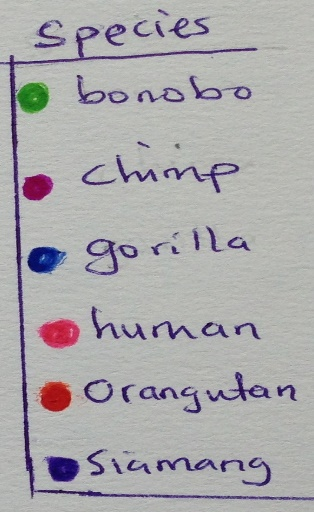 Species
bonobo
chimp
gorilla
human
Orangutan
Siamang